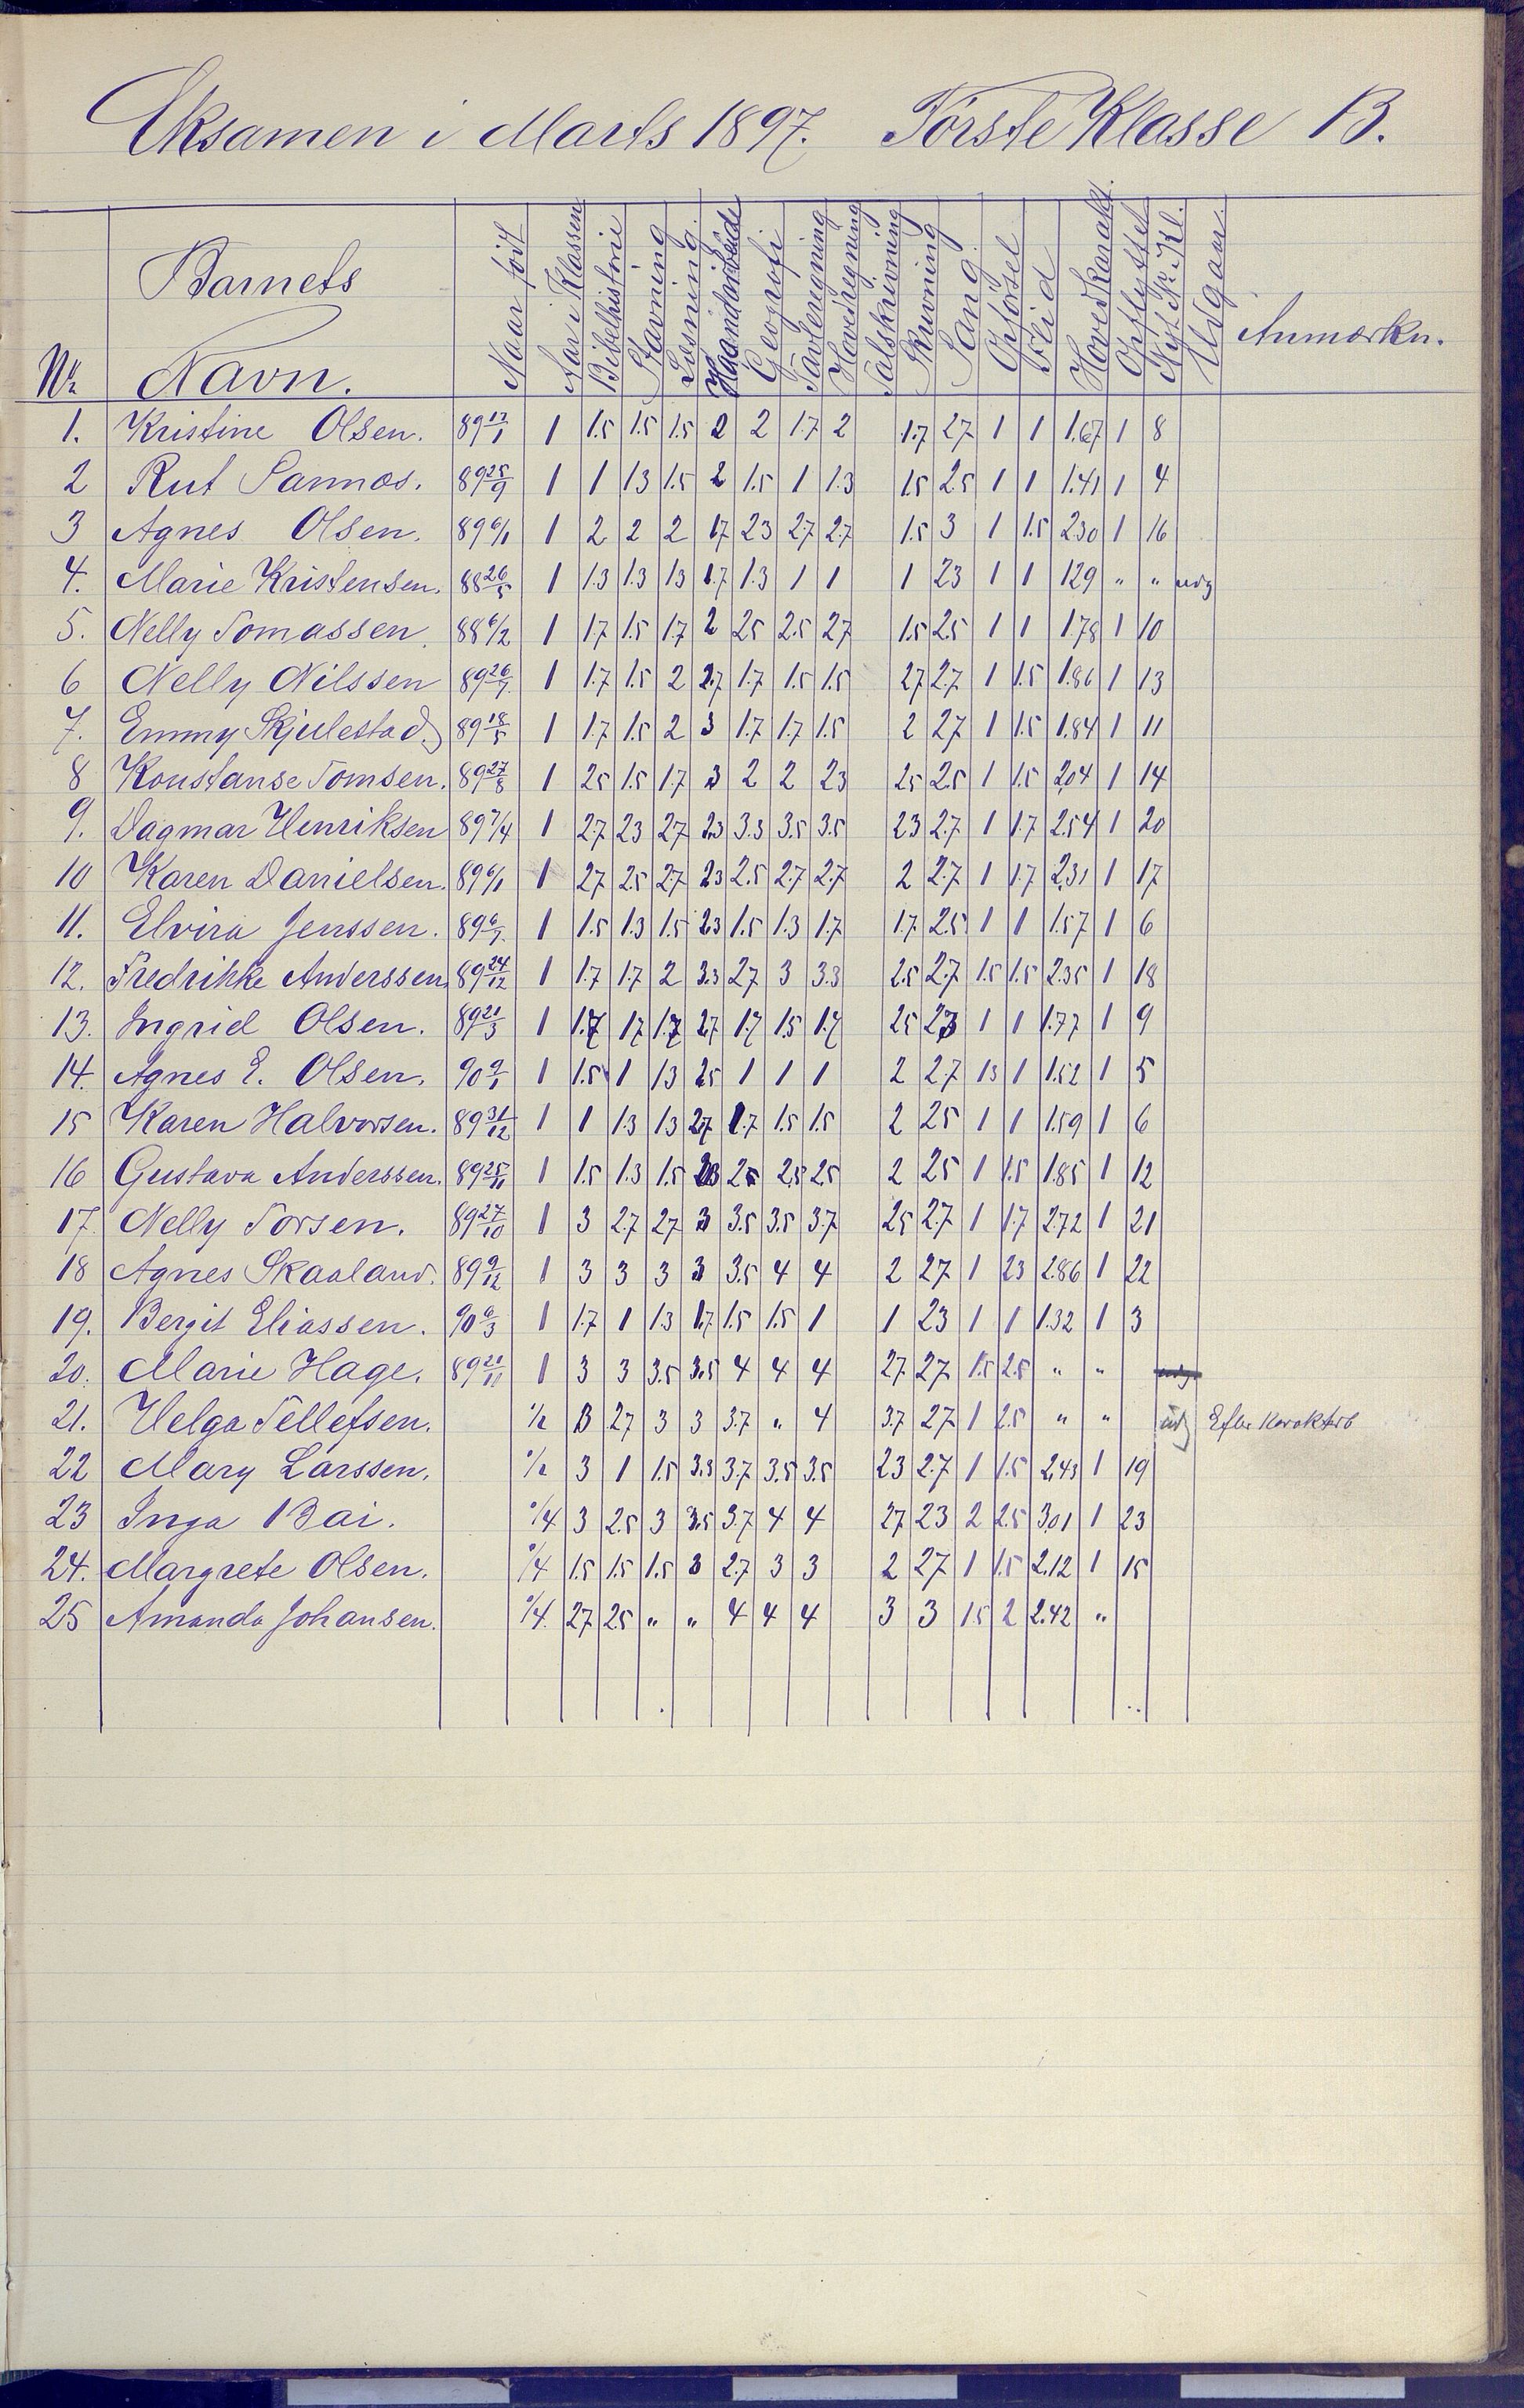 Eksamen i Marts 1897. Første Klasse B.
Nr Barnets Navn. Naar født Aar i Klassen Bibelhistorie Stavning Læsning. Haandarbeide Geografi Tavleregning Hovedregning Talskrivning Skrivning Sang. Opførsel Flid Hovedkarakt. Opflyttet Nyt Nr. i Kl. Udgaar. Anmærkn.
1. Kristine Olsen. 89 17/1 1 1.5 1.5 1.5 2 2 1.7 2 1.7 2.7 1 1 1.67 1 8
2 Rut Sannæs. 89 25/9 1 1 1.3 1.5 2 1.5 1 1.3 1.5 2.5 1 1 1.41 1 4
3 Agnes Olsen. 89 6/1 1 2 2 2 1.7 2.3 2.7 2.7 1.5 3 1 1.5 2.30 1 16
4. Marie Kristensen. 88 26/5 1 1.3 1.3 1.3 1.7 1.3 1 1 1 2.3 1 1 1.29 " " udg
5. Nelly Tomassen. 88 6/2 1 1.7 1.5 1.7 2 2.5 2.5 2.7 1.5 2.5 1 1 1.78 1 10
6 Nelly Nilssen 89 26/7. 1 1.7 1.5 2 2.7 1.7 1.5 1.5 2.7 2.7 1 1.5 1.86 1 13
7. Emmy Skjulestad. 89 18/5 1 1.7 1.5 2 3 1.7 1.7 1.5 2 2.7 1 1.5 1.84 1 11
8 Konstanse Tomsen. 89 27/8 1 2.5 1.5 1.7 3 2 2 2.3 2.5 2.5 1 1.5 2.04 1 14
9. Dagmar Henriksen 89 7/4 1 2.7 2.3 2.7 2.3 3.3 3.5 3.5 2.3 2.7 1 1.7 2.54 1 20
10 Karen Danielsen. 89 6/1 1 2.7 2.5 2.7 2.3 2.5 2.7 2.7 2 2.7 1 1.7 2.31 1 17
11. Elvira Jenssen. 89 6/7. 1 1.5 1.3 1.5 2.3 1.5 1.3 1.7 1.7 2.5 1 1 1.57 1 6
12. Fredrikke Anderssen. 89 24/12 1 1.7 1.7 2 3.3 2.7 3 3.3 2.5 2.7 1.5 1.5 2.35 1 18
13. Ingrid Olsen. 89 21/3 1 1.7 1.7 1.7 2.7 1.7 1.5 1.7 2.5 2.3 1 1 1.77 1 9
14. Agnes E. Olsen. 90 9/1 1 1.5 1 1.3 2.5 1 1 1 2 2.7 1.3 1 1.52 1 5
15 Karen Halvorsen. 89 31/12 1 1 1.3 1.3 2.7 1.7 1.5 1.5 2 2.5 1 1 1.59 1 6
16 Gustava Anderssen. 89 25/11 1 1.5 1.3 1.5 2.3 2.5 2.5 2.5 2 2.5 1 1.5 1.85 1 12
17. Nelly Torsen. 89 27/10 1 3 2.7 2.7 3 3.5 3.5 3.7 2.5 2.7 1 1.7 2.72 1 21
18 Agnes Skaaland. 89 9/12 1 3 3 3 3 3.5 4 4 2 2.7 1 2.3 2.86 1 22
19. Bergit Eliassen. 90 6/3 1 1.7 1 1.3 1.7 1.5 1.5 1 1 2.3 1 1 1.32 1 3
20. Marie Hage. 89 21/11 1 3 3 3.5 3.5 4 4 4 2.7 2.7 1.5 2.5 " " udg
21. Helga Tellefsen. 1/2 3 2.7 3 3 3.7 " 4 3.7 2.7 1 2.5 " " udg
22 Mary Larssen. 1/2 3 1 1.5 3.3 3.7 3.5 3.5 2.3 2.7 1 1.5 2.43 1 19
23 Inga Bai. 1/4 3 2.5 3 3.5 3.7 4 4 2.7 2.3 2 2.5 3.01 1 23
24. Margrete Olsen. 1/4 1.5 1.5 1.5 3 2.7 3 3 2 2.7 1 1.5 2.12 1 15
25 Amanda Johansen. 1/4. 2.7 2.5 " " 4 4 4 3 3 1.5 2 2.42 "